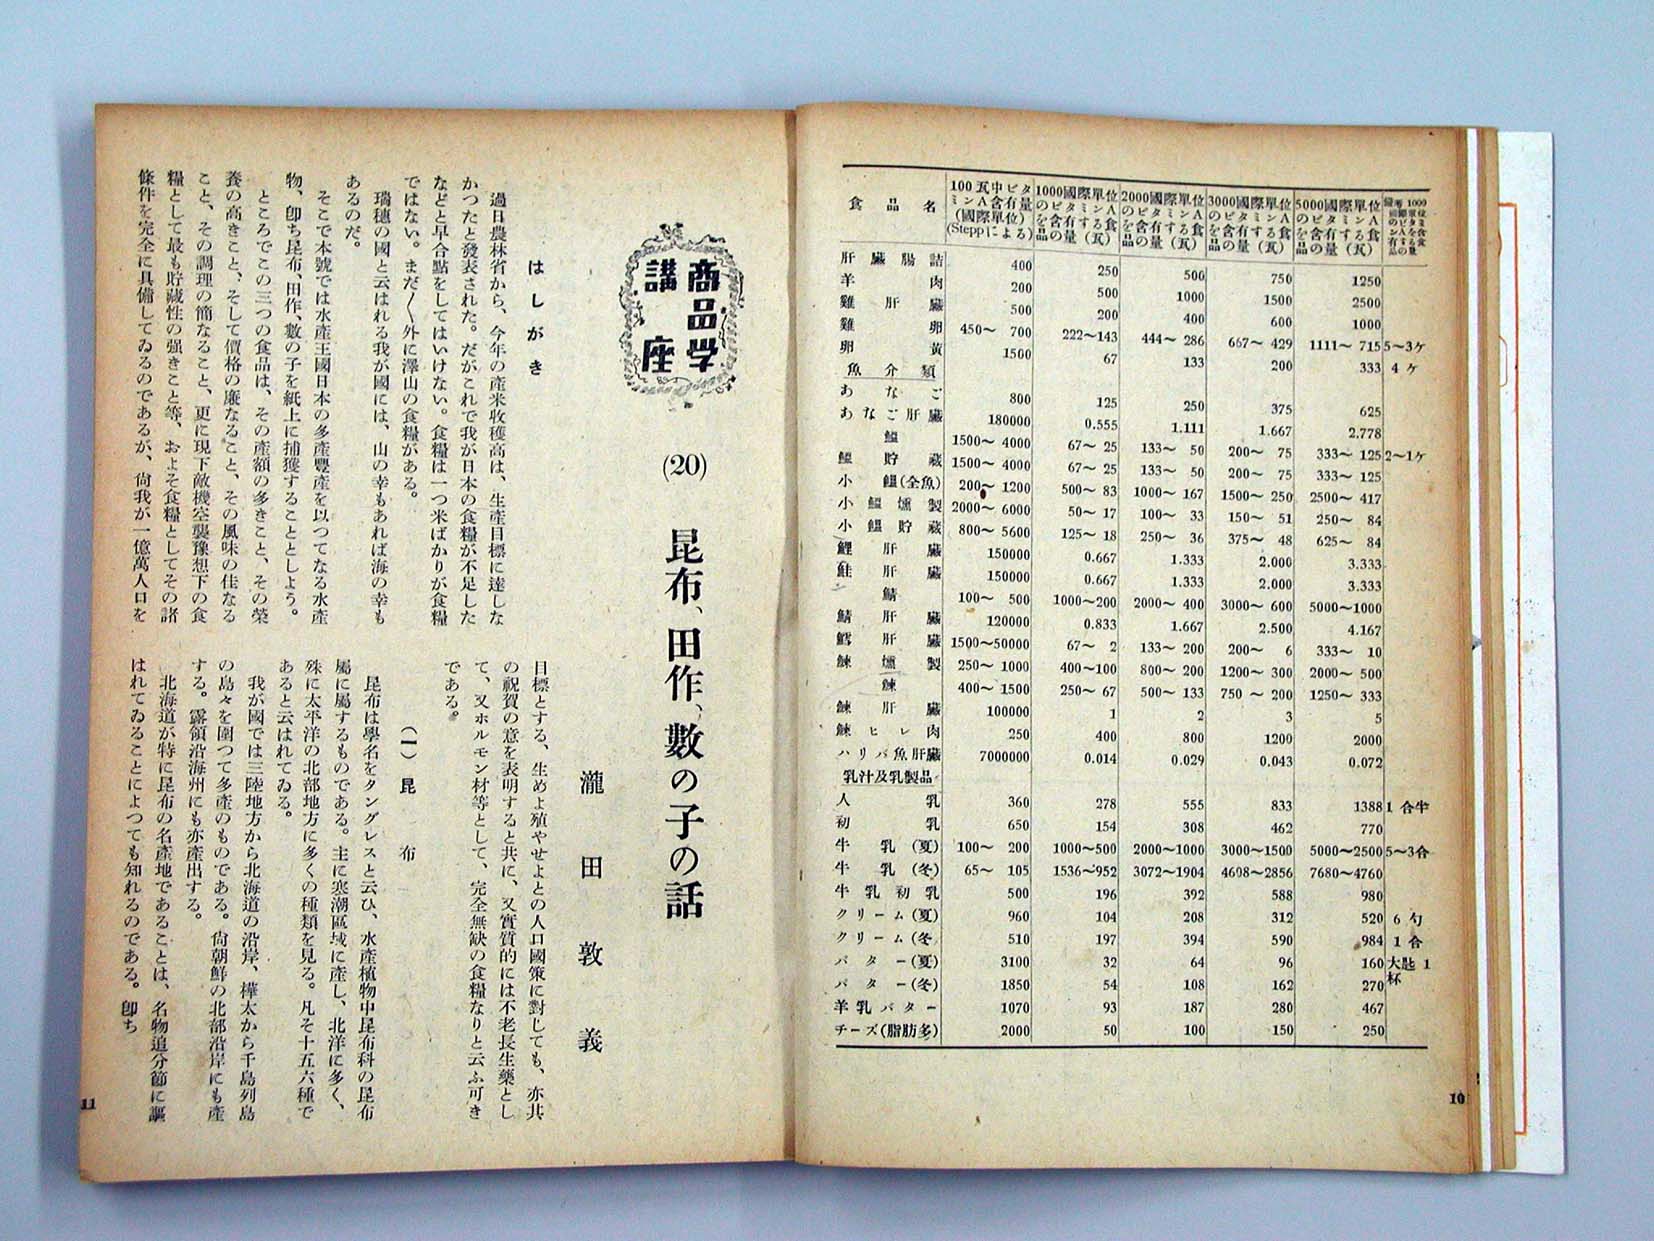 食品名 100瓦中ビタミンA含有量(國際單位)(Steppによる) 1000國際單位のビタミンAを含有する食品の量(瓦) 2000國際單位のビタミンAを含有する食品の量(瓦) 3000國際單位のビタミンAを含有する食品の量(瓦) 5000國際單位のビタミンAを含有する食品の量(瓦)
肝臓腸詰 400 250 500 750 1250
羊肉 200 500 1000 1500 2500
雞肝臓 500 200 400 600 1000
雞卵 450〜700 222〜143 444〜286 667〜429 1111〜715 5〜3ケ
卵黄 1500 67 133 200 333 4ケ
魚介類
あなご 800 125 250 375 625
あなご肝臓 180000 0.555 1.111 1.667 2.778
鰮 1500〜4000 67〜25 133〜50 200〜75 333〜125 2〜1ケ
鰮貯蔵 1500〜4000 67〜25 133〜50 200〜75 333〜125
小鰮(全魚) 200〜1200 500〜83 1000〜167 1500〜250 2500〜417
小鰮燻製 2000〜6000 50〜17 100〜33 150〜51 250〜84
小鰮貯蔵 800〜5600 125〜18 250〜36 375〜48 625〜84
鯉肝臓 150000 0.667 1.333 2.000 3.333
鮭肝臓 150000 0.667 1.333 2.000 3.333
鯖 100〜500 1000〜200 2000〜400 3000〜600 5000〜1000
鯖肝臓 120000 0.833 1.667 2.500 4.167
鱈肝臓 1500〜50000 67〜2 133〜200 200〜6 333〜10
鰊燻製 250〜1000 400〜100 800〜200 1200〜300 2000〜500
鰊 400〜1500 250〜67 500〜133 750〜200 1250〜333
鰊肝臓 100000 1 2 3 5
鰊ヒレ肉 250 400 800 1200 2000
ハリバ魚肝臓 7000000 0.014 0.029 0.043 0.072
乳汁及乳製品
人乳 360 278 555 833 1388 1合半
初乳 650 154 308 462 770
牛乳(夏) 100〜200 1000〜500 2000〜1000 3000〜1500 5000〜2500 5〜3合
牛乳(冬) 65〜105 1536〜952 3072〜1904 4608〜2856 7680〜4760
牛乳初乳 500 196 392 588 980
クリーム(夏) 960 104 208 312 520 6勺
クリーム(冬 510 197 394 590 984 1合
バター(夏) 3100 32 64 96 160 大匙1杯
バター(冬) 1850 54 108 162 270
羊乳バター 1070 93 187 280 467
チーズ(脂肪多) 2000 50 100 150 250
10
商品学
講座
(20) 昆布、田作、數の子の話
瀧田敦義
はしがき
過日農林省から、今年の産米收穫高は、生産目標に達しな
かつたと發表された。だがこれで我が日本の食糧が不足した
などと早合點をしてはいけない。食糧は一つ米ばかりが食糧
ではない。まだ〱外に澤山の食糧がある。
瑞穂の國と云はれる我が國には、山の幸もあれば海の幸も
あるのだ。
そこで本號では水産王國日本の多産豐産を以つてなる水産
物、卽ち昆布、田作、數の子を紙上に捕獲することとしよう。
ところでこの三つの食品は、その産額の多きこと、その榮
養の高きこと、そして價格の廉なること、その風味の佳なる
こと、その調理の簡なること、更に現下敵機空襲豫想下の食
糧として最も貯蔵性の强きこと等、およそ食糧としてその諸
條件を完全に具備してゐるのであるが、尙我が一億萬人口を
目標とする、生めよ殖やせよとの人口國策に對しても、亦共
の祝賀の意を表明すると共に、又實質的には不老長生藥とし
て、又ホルモン材等として、完全無缺の食糧なりと云ふ可き
である。
(一) 昆布
昆布は學名をタングレスと云ひ、水產植物中昆布科の昆布
屬に屬するものである。主に寒潮區域に産し、北洋に多く、
殊に太平洋の北部地方に多くの種類を見る。凡そ十五六種で
あると云はれてゐる。
我が國では三陸地方から北海道の沿岸、樺太から千島列島
の島々を圍つて多産のものである。尙朝鮮の北部沿岸にも産
する。露領沿海州にも亦産出する。
北海道が特に昆布の名産地であることは、名物追分節に謳
はれてゐることによつても知れるのである。卽ち
11